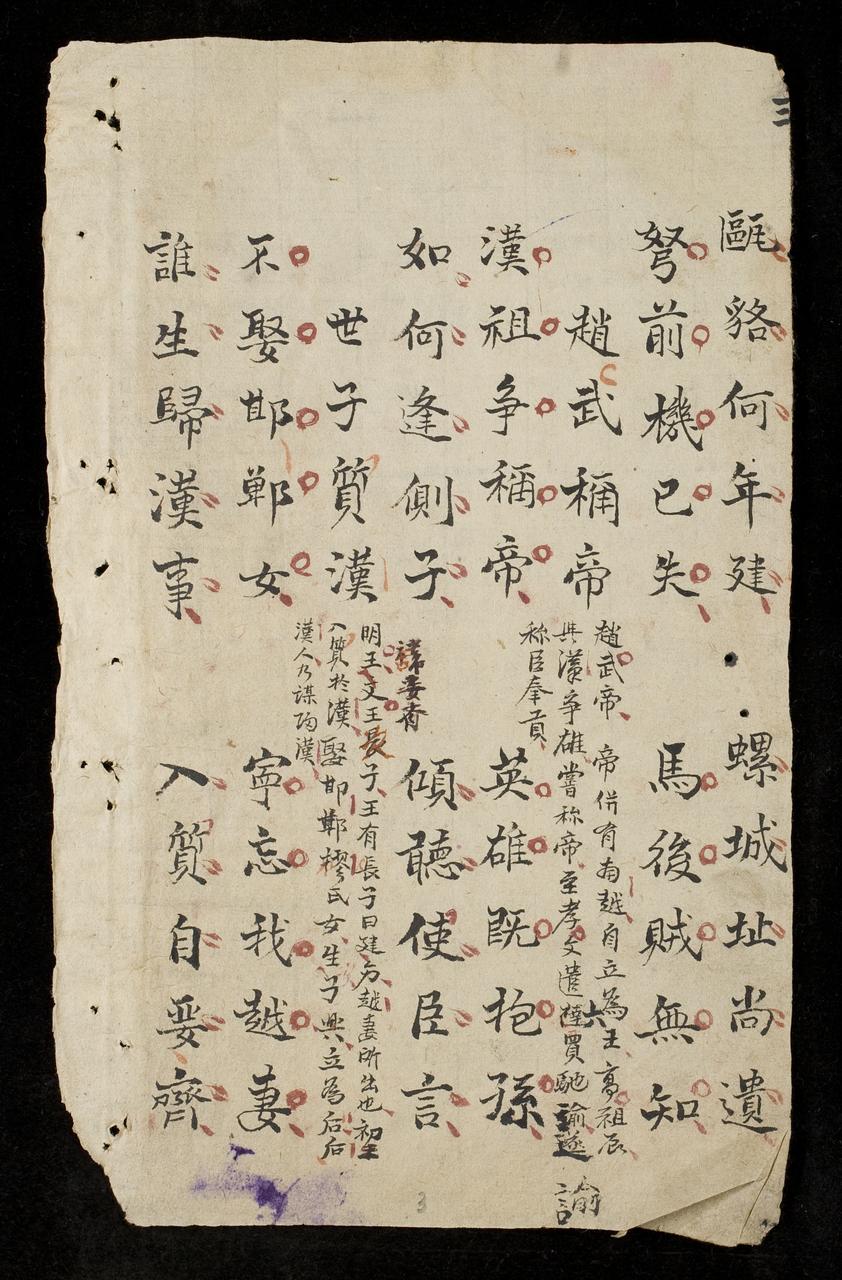 三
甌貉何年建 螺城址尚遺
弩前機已失 馬後賊無知
趙武稱帝
趙武帝 帝併有南越自立為王高祖辰
與漢爭雄嘗称帝至孝文遣陸賈馳諭遂 諭
称臣奉貢
漢祖争稱帝 英雄既抱孫
如何逢側子 傾聽使臣言
世子質漢
明王文王長子王有長子曰建方越妻所出也初
入質於漢娶邯鄲樛氏女生子興立為后后
漢人乃謀陷漢
不娶邯鄲女 寧忘我越妻
誰生歸漢事 入質自嬰齊
3